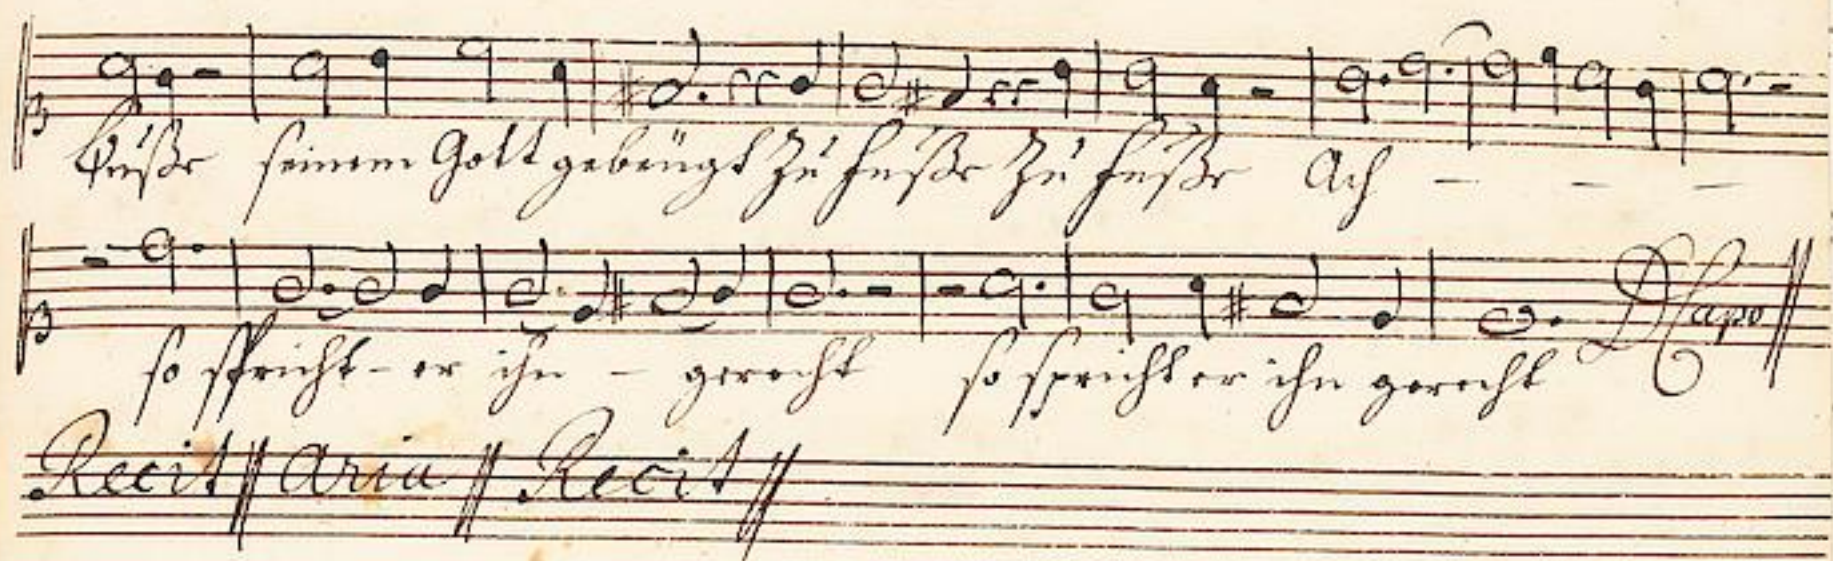 buße seinem Gott gebeügt zu fuße zu fuße Ach - - -
so spricht - er ihn - gerecht so spricht er ihn gerecht D Capo
Recit || Aria || Recit ||